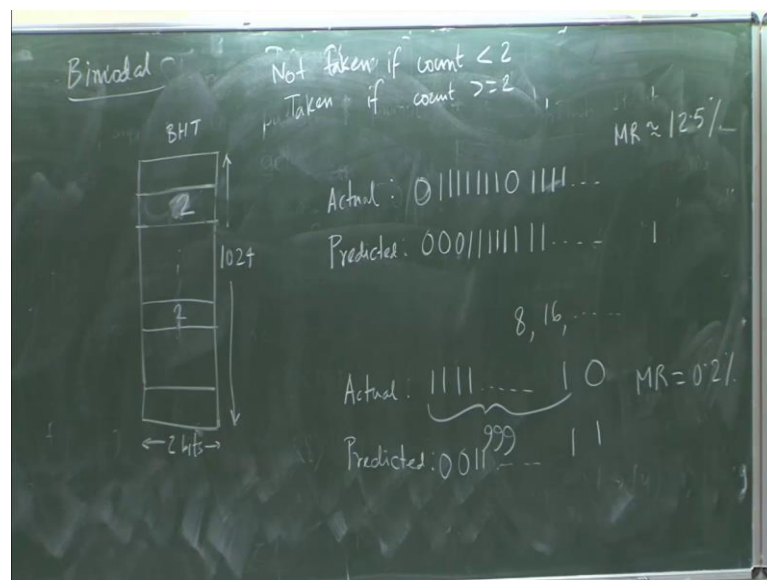 Bimodal
Not taken if count < 2
Taken if count >= 2
BHT
MR ≈ 12.5%
2
Actual : 0 1 1 1 1 1 1 1 1 0 1 1 1 1 ....
1024
Predicted : 0 0 0 1 1 1 1 1 1 1 1 1 .... 1
2
8, 16, ....
Actual : 1 1 1 1 ..... 1 0
MR = 0.2%
999
Predicted : 0 0 1 1 .... 1 1
2 bits